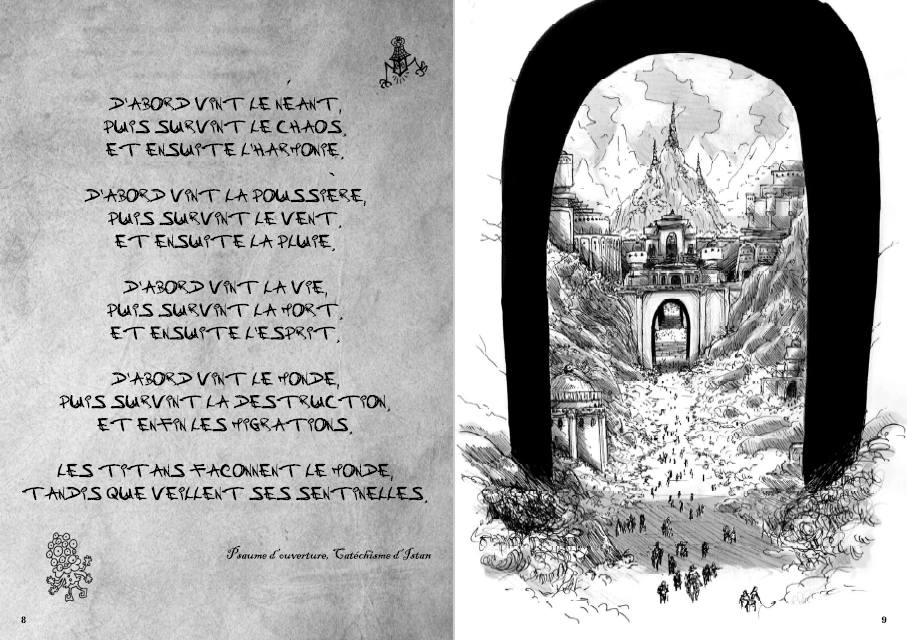 D'ABORD VINT LE NÉANT,
PUIS SURVINT LE CHAOS,
ET ENSUITE L'HARMONIE.
D'ABORD VINT LA POUSSIÈRE,
PUIS SURVINT LE VENT,
ET ENSUITE LA PLUIE.
D'ABORD VINT LA VIE,
PUIS SURVINT LA MORT,
ET ENSUITE L'ESPRIT.
D'ABORD VINT LE MONDE,
PUIS SURVINT LA DESTRUCTION,
ET ENFIN LES MIGRATIONS.
LES TITANS FACONNENT LE MONDE,
TANDIS QUE VEILLENT SES SENTINELLES.
Psaume d'ouverture, Catéchisme d'Istan
8
9